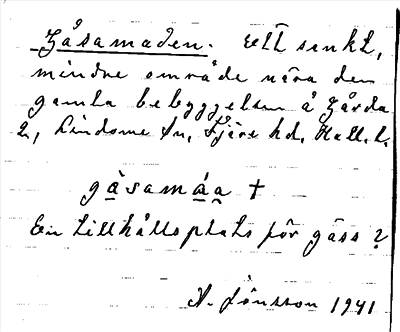 Gåsamaden. Ett sankt,
mindre område nära den
gamla bebyggelsen å Gårda
2, Lindome sn, Fjäre hd, Hall. l.
gåsamáa †
En tillhållsplats för gäss?
A. Jönsson 1941